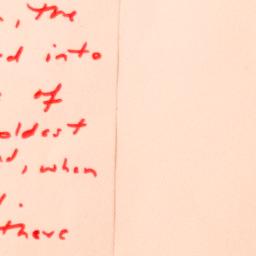 , the
into
of
oldest
, when
there